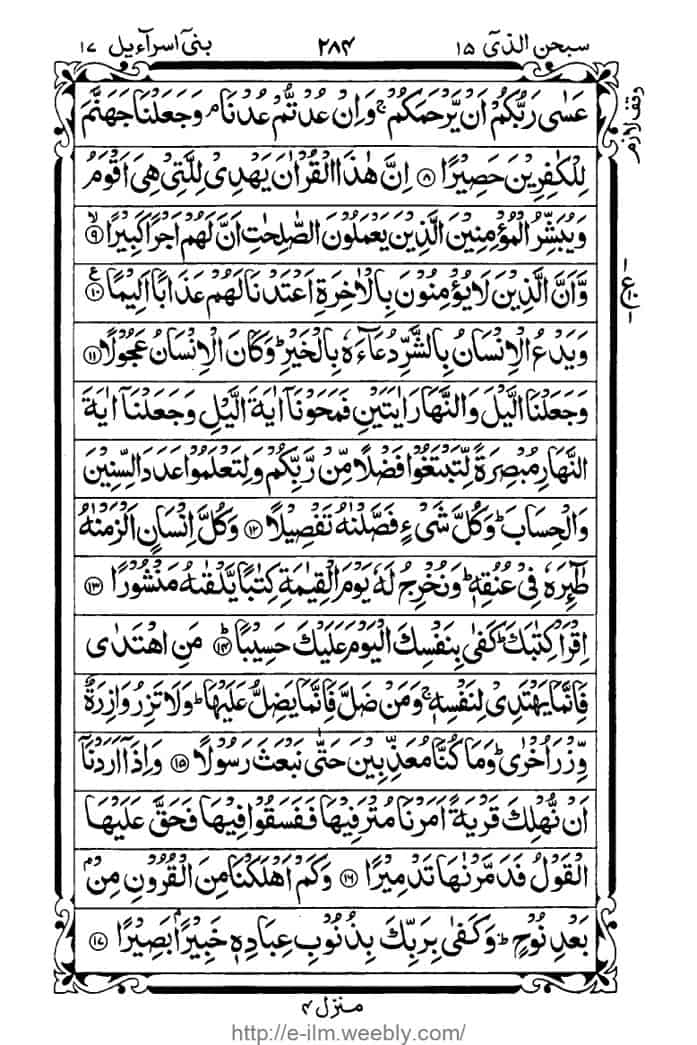 سبحن الذی ۱۵ ۲۸۴ بنی اسرآءیل ۱۷
وقف لازم
عَسٰی رَبُّكُمْ اَنْ یَّرْحَمَكُمْ ۚ وَاِنْ عُدْتُّمْ عُدْنَا ۘ وَجَعَلْنَا جَهَنَّمَ
لِلْكٰفِرِیْنَ حَصِیْرًا ۸ اِنَّ هٰذَا الْقُرْاٰنَ یَهْدِیْ لِلَّتِیْ هِیَ اَقْوَمُ
وَیُبَشِّرُ الْمُؤْمِنِیْنَ الَّذِیْنَ یَعْمَلُوْنَ الصّٰلِحٰتِ اَنَّ لَهُمْ اَجْرًا كَبِیْرًا ۙ ۹
وَّاَنَّ الَّذِیْنَ لَا یُؤْمِنُوْنَ بِالْاٰخِرَةِ اَعْتَدْنَا لَهُمْ عَذَابًا اَلِیْمًا ۱۰ ع
وَیَدْعُ الْاِنْسَانُ بِالشَّرِّ دُعَآءَهٗ بِالْخَیْرِ ؕ وَكَانَ الْاِنْسَانُ عَجُوْلًا ۱۱
وَجَعَلْنَا الَّیْلَ وَالنَّهَارَ اٰیَتَیْنِ فَمَحَوْنَاۤ اٰیَةَ الَّیْلِ وَجَعَلْنَاۤ اٰیَةَ
النَّهَارِ مُبْصِرَةً لِّتَبْتَغُوْا فَضْلًا مِّنْ رَّبِّكُمْ وَلِتَعْلَمُوْا عَدَدَ السِّنِیْنَ
وَالْحِسَابَ ؕ وَكُلَّ شَیْءٍ فَصَّلْنٰهُ تَفْصِیْلًا ۱۲ وَكُلَّ اِنْسَانٍ اَلْزَمْنٰهُ
طٰٓئِرَهٗ فِیْ عُنُقِهٖ ؕ وَنُخْرِجُ لَهٗ یَوْمَ الْقِیٰمَةِ كِتٰبًا یَّلْقٰىهُ مَنْشُوْرًا ۱۳
اِقْرَاْ كِتٰبَكَ ؕ كَفٰی بِنَفْسِكَ الْیَوْمَ عَلَیْكَ حَسِیْبًا ؕ ۱۴ مَنِ اهْتَدٰی
فَاِنَّمَا یَهْتَدِیْ لِنَفْسِهٖ ۚ وَمَنْ ضَلَّ فَاِنَّمَا یَضِلُّ عَلَیْهَا ؕ وَلَا تَزِرُ وَازِرَةٌ
وِّزْرَ اُخْرٰی ؕ وَمَا كُنَّا مُعَذِّبِیْنَ حَتّٰی نَبْعَثَ رَسُوْلًا ۱۵ وَاِذَاۤ اَرَدْنَاۤ
اَنْ نُّهْلِكَ قَرْیَةً اَمَرْنَا مُتْرَفِیْهَا فَفَسَقُوْا فِیْهَا فَحَقَّ عَلَیْهَا
الْقَوْلُ فَدَمَّرْنٰهَا تَدْمِیْرًا ۱۶ وَكَمْ اَهْلَكْنَا مِنَ الْقُرُوْنِ مِنْۢ
بَعْدِ نُوْحٍ ؕ وَكَفٰی بِرَبِّكَ بِذُنُوْبِ عِبَادِهٖ خَبِیْرًۢا بَصِیْرًا ۱۷
منزل ۴
http://e-ilm.weebly.com/